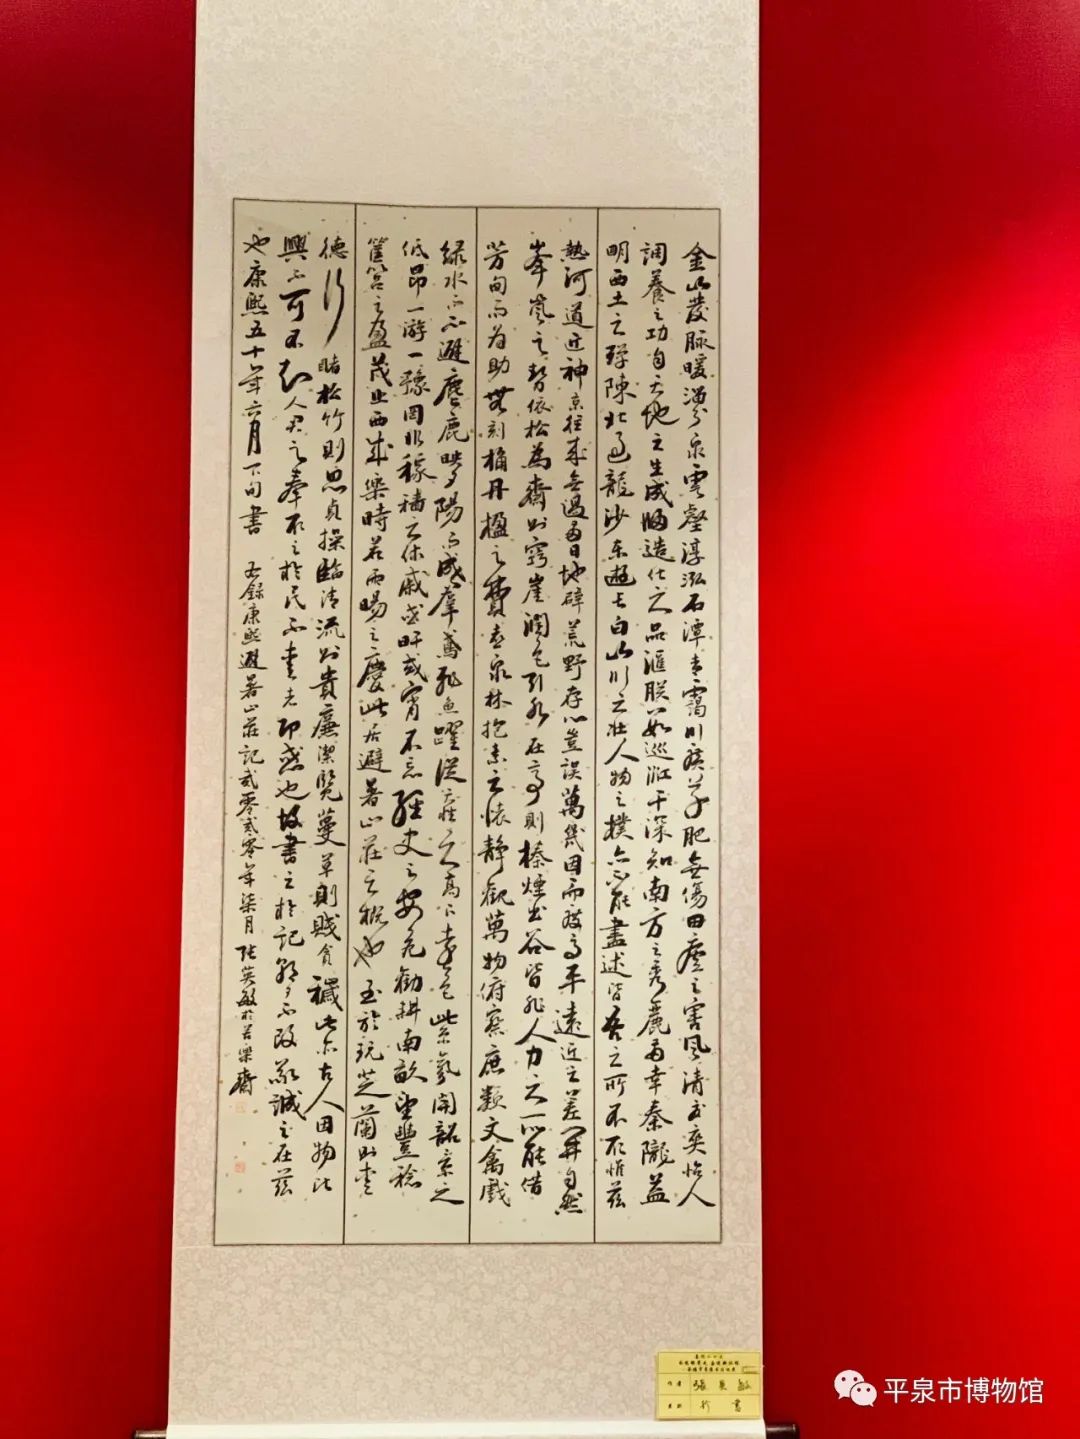 金山發脈暖溜分泉雲壑淳泓石潭青靄川廣草肥無傷田廬之害風清夏爽怡人
調養之功自天地之生成歸造化之品匯朕數巡江干深知南方之秀麗兩幸秦隴益
明西土之殫陳北過龍沙東遊長白山川之壯人物之樸亦不能盡述皆吾之所不取惟茲
熱河道近神京往來無過兩日地辟荒野存心豈誤萬幾因而度高平遠近之差開自然
峯嵐之勢依松為齋則竅崖潤色引水在亭則榛煙出谷皆非人力之所能借
芳甸而為助無刻桷丹楹之費喜泉林抱素之懷靜觀萬物俯察庶類文禽戲
綠水而不避麀鹿映夕陽而成羣鳶飛魚躍從天性之高下遠色紫氛開韶景之
低昂一游一豫罔非稼穡之休戚或旰或宵不忘經史之安危勸耕南畝望豐稔
筐筥之盈茂止西成樂時若雨暘之慶此居避暑山莊之概也至於玩芝蘭則愛
德行睹松竹則思貞操臨清流則貴廉潔覽蔓草則賤貪穢此亦古人因物比
興不可不知人君之奉取之於民不愛者即惑也故書之於記朝夕不改敬誠之在茲
也康熙五十年六月下旬書 右錄康熙避暑山莊記貳零貳零年柒月張英敏於若樂齋
作者 張英敏
行書
平泉市博物馆